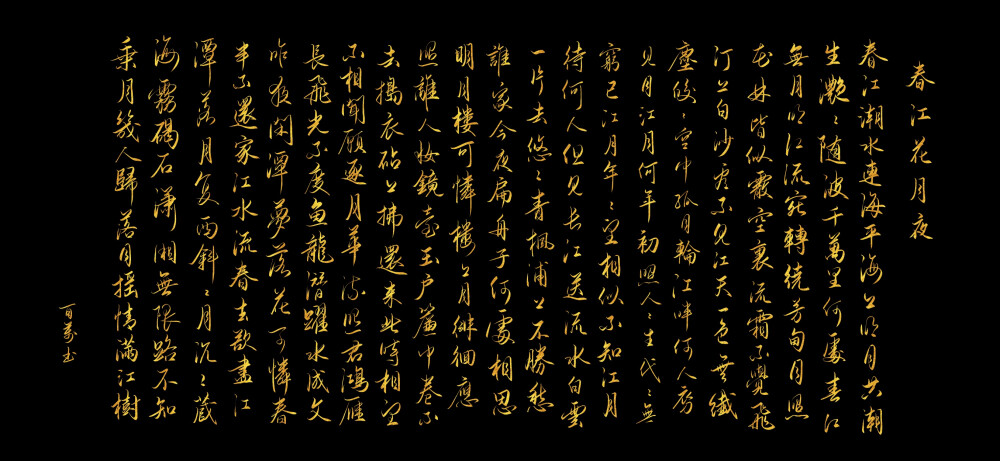 春江花月夜
春江潮水連海平海上明月共潮
生灧〻随波千萬里何處春江
無月明江流宛轉繞芳甸月照
花林皆似霰空裏流霜不覺飛
汀上白沙看不見江天一色無纖
塵皎〻空中孤月輪江畔何人初
見月江月何年初照人〻生代〻無
窮已江月年〻望相似不知江月
待何人但見長江送流水白雲
一片去悠〻青楓浦上不勝愁
誰家今夜扁舟子何處相思
明月樓可憐樓上月徘徊應
照離人妝鏡臺玉户簾中卷不
去搗衣砧上拂還来此時相望
不相聞願逐月華流照君鴻雁
長飛光不度魚龍潛躍水成文
昨夜閑潭夢落花可憐春
半不還家江水流春去欲盡江
潭落月复西斜〻月沉〻藏
海霧碣石瀟湘無限路不知
乘月幾人歸落月摇情滿江樹